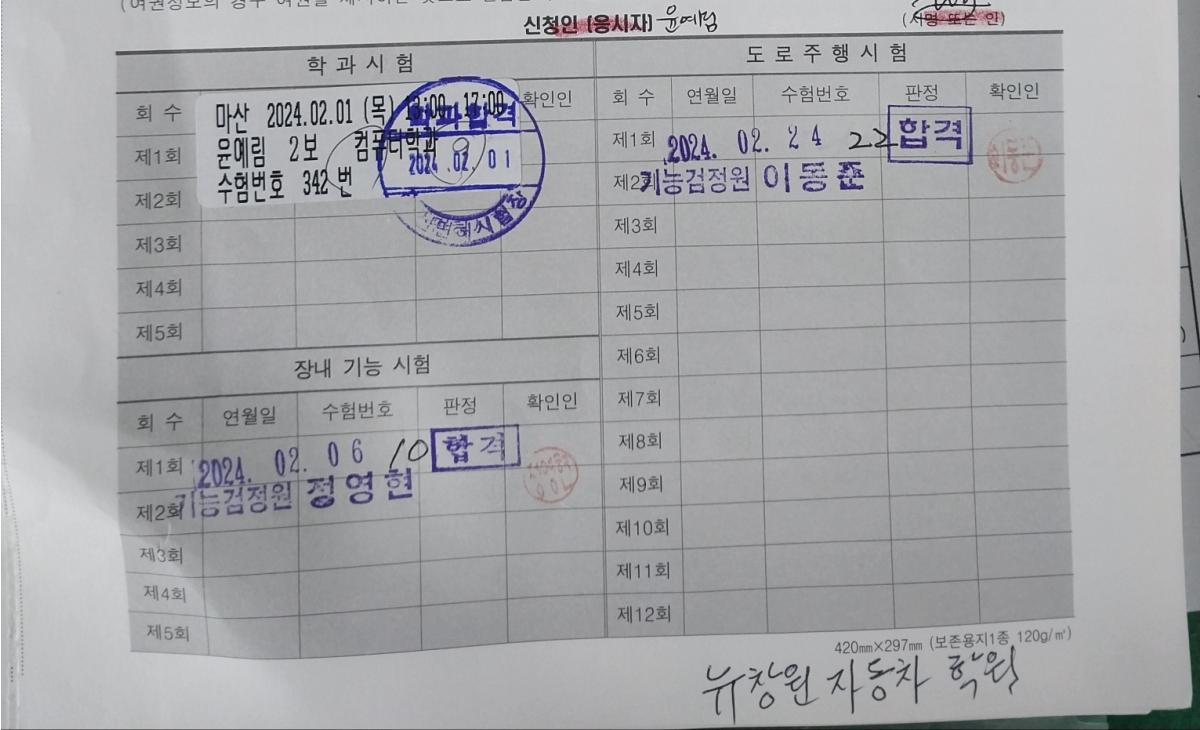 신청인 (응시자) 윤예림
(서명 또는 인)
학 과 시 험
회 수
확인인
마산 2024.02.01 (목) 13:00 17:00
윤예림 2보 컴퓨터학과
수험번호 342 번
학과합격
2024.02.01
제1회
제2회
제3회
제4회
제5회
장내 기능 시험
회 수 연월일 수험번호 판정 확인인
제1회 2024. 02. 06 10 합격
제2회 기능검정원 정영현
제3회
제4회
제5회
도 로 주 행 시 험
회 수 연월일 수험번호 판정 확인인
제1회 2024. 02. 24 22 합격
제2회 기능검정원 이동준
제3회
제4회
제5회
제6회
제7회
제8회
제9회
제10회
제11회
제12회
420㎜×297㎜ (보존용지1종 120g/㎡)
뉴창원 자동차 학원